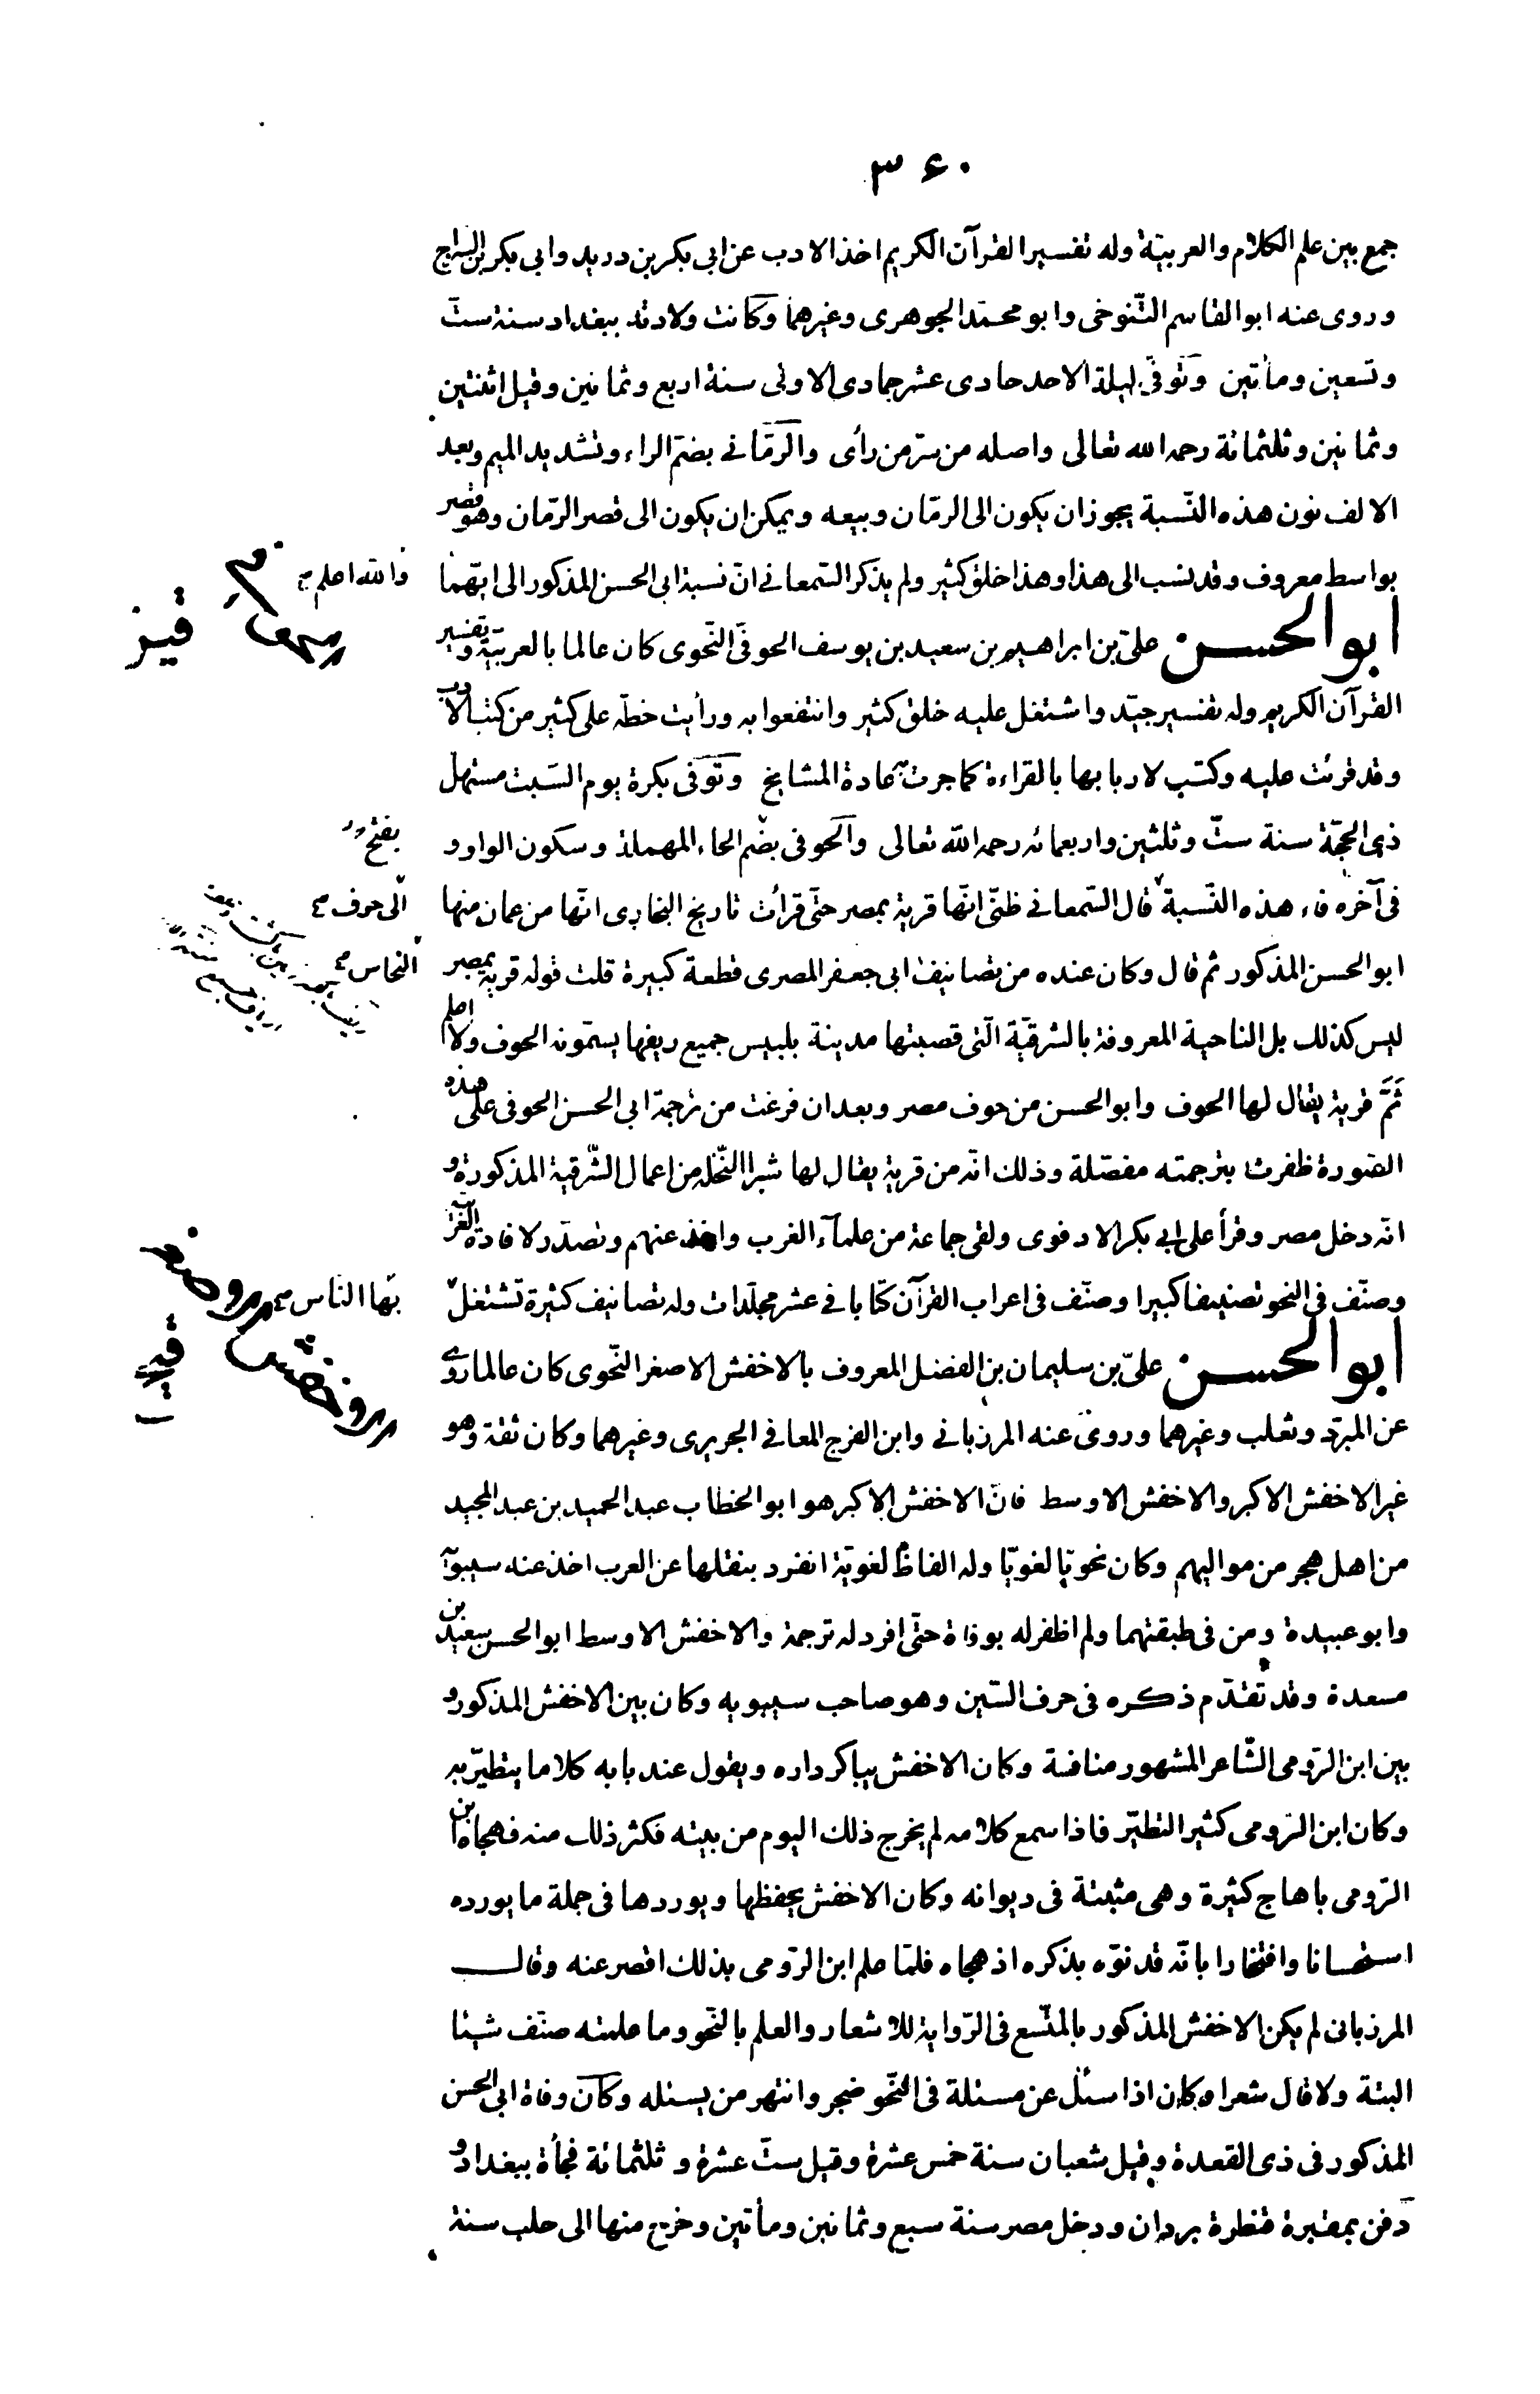 ۳۶۰
جمع بين علم الكلام والعربيّة وله تفسير القرآن الكريم اخذ الادب عن ابى بكر بن دريد وابى بكر بن السراج
وروى عنه ابو القاسم التّنوخى وابو محمّد الجوهرى وغيرهما وكانت ولادته ببغداد سنة ستّ
وتسعين ومأتين وتوفّى ليلة الاحد حادى عشر جمادى الاولى سنة اربع وثمانين وقيل اثنتين
وثمانين وثلثمائة رحمه الله تعالى واصله من سرّ من رأى والرمّانى بضمّ الراء وتشديد الميم وبعد
الالف نون هذه النّسبة يجوز ان يكون الى الرمّان وبيعه ويمكن ان يكون الى قصر الرمّان وهو قصر
بواسط معروف وقد نسب الى هذا وهذا خلق كثير ولم يذكر السّمعانى انّ نسبة ابى الحسن المذكور الى ايّهما
والله اعلم صح
ابو الحسن علىّ بن ابراهيم بن سعيد بن يوسف الحوفىّ النّحوى كان عالما بالعربيّة وتفسير
القرآن الكريم وله تفسير جيّد واشتغل عليه خلق كثير وانتفعوا به ورأيت خطّه على كثير من كتب الادب
وقد قرئت عليه وكتب لاربابها بالقراءة كما جرت عادة المشايخ وتوفى بكرة يوم السّبت مستهلّ
ذى الحجّة سنة ستّ وثلثين واربعمائه رحمه الله تعالى والحوفى بضم الحاء المهملة وسكون الواو و
بفتح
فى آخره فاء هذه النّسبة قال السّمعانى ظنّى انّها قرية بمصر حتّى قرأت تاريخ البخارى انّها من عمان منها
الى حوف صح
ابو الحسن المذكور ثم قال وكان عنده من تصانيف ابى جعفر المصرى قطعة كبيرة قلت قوله قرية بمصر
النحاس صح
ليس كذلك بل الناحية المعروفة بالشرقيّة الّتى قصبتها مدينة بلبيس جميع ريفها يسمّونه الحوف ولا اعلم
ثَمَّ قرية يقال لها الحوف وابو الحسن من حوف مصر وبعد ان فرغت من ترجمة ابى الحسن الحوفى على هذه
الصّورة ظفرت بترجمته مفصّلة وذلك انّه من قرية يقال لها شبرا النّخله من اعمال الشّرقية المذكورة و
انّه دخل مصر وقرأ على ابى بكر الادفوى ولقى جماعة من علمآء الغرب واخذ عنهم وتصدّر لافادة العربيّة
وصنّف فى النحو تصنيفا كبيرا وصنّف فى اعراب القرآن كتابا فى عشر مجلّدات وله تصانيف كثيرة تشتغل
بها الناس صح
ابو الحسن علىّ بن سليمان بن الفضل المعروف بالاخفش الاصغر النّحوى كان عالما روى
عن المبرّد وثعلب وغيرهما وروى عنه المرزبانى وابن الفرج المعافى الجريرى وغيرهما وكان ثقة وهو
غير الاخفش الاكبر والاخفش الاوسط فانّ الاخفش الاكبر هو ابو الخطاب عبد الحميد بن عبد المجيد
من اهل هجر من مواليهم وكان نحويّا لغويّا وله الفاظ لغويّة انفرد بنقلها عن العرب اخذ عنه سيبويه
وابو عبيدة ومن فى طبقتهما ولم اظفر له بوفاة حتّى افرد له ترجمة والاخفش الاوسط ابو الحسن سعيد بن
مسعدة وقد تقدّم ذكره فى حرف السّين وهو صاحب سيبويه وكان بين الاخفش المذكور و
بين ابن الرّومى الشّاعر المشهور منافسة وكان الاخفش يباكر داره ويقول عند بابه كلاما يتطيّر به
وكان ابن الرّومى كثير التطيّر فاذا سمع كلامه لم يخرج ذلك اليوم من بيته فكثر ذلك منه فهجاه ابن
الرّومى باهاج كثيرة وهى مثبتة فى ديوانه وكان الاخفش يحفظها ويوردها فى جملة ما يورده
استحسانا وافتخارا بانّه قد نوّه بذكره اذ هجاه فلمّا علم ابن الرّومى بذلك اقصر عنه وقال
المرزبانى لم يكن الاخفش المذكور بالمتّسع فى الرّواية للاشعار والعلم بالنّحو وما علمته صنّف شيئا
البتة ولا قال شعرا وكان اذا سئل عن مسئلة فى النّحو ضجر وانتهر من يسئله وكان وفاة ابى الحسن
المذكور فى ذى القعدة وقيل شعبان سنة خمس عشرة وقيل ستّ عشرة وثلثمائة فجأة ببغداد و
دفن بمقبرة قنطرة بردان ودخل مصر سنة سبع وثمانين ومأتين وخرج منها الى حلب سنة